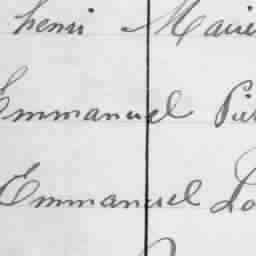 henri Marie
Emmanuel Pie
Emmanuel Lo